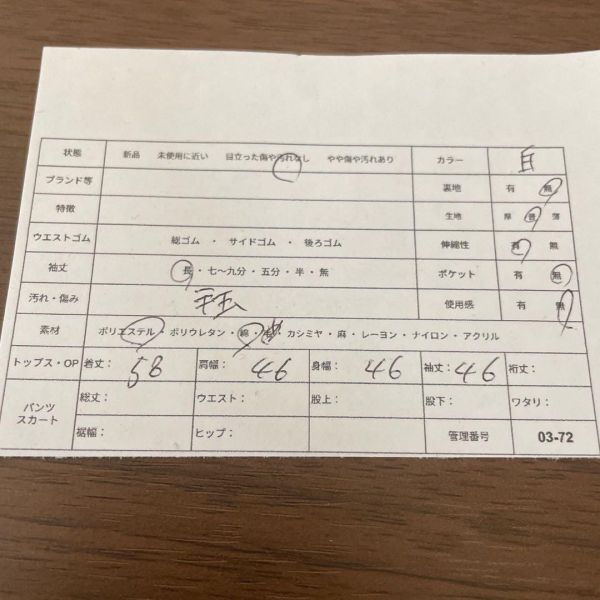 状態 新品 未使用に近い 目立った傷や汚れなし やや傷や汚れあり カラー 白
ブランド等 裏地 有 無
特徴 生地 厚 普 薄
ウエストゴム 総ゴム ・ サイドゴム ・ 後ろゴム 伸縮性 有 無
袖丈 長・七〜九分・五分・半・無 ポケット 有 無
汚れ・傷み 毛玉 使用感 有 無
素材 ポリエステル・ポリウレタン・綿・毛・カシミヤ・麻・レーヨン・ナイロン・アクリル
トップス・OP 着丈: 58 肩幅: 46 身幅: 46 袖丈: 46 裄丈:
パンツ スカート 総丈: ウエスト: 股上: 股下: ワタリ:
裾幅: ヒップ: 管理番号 03-72